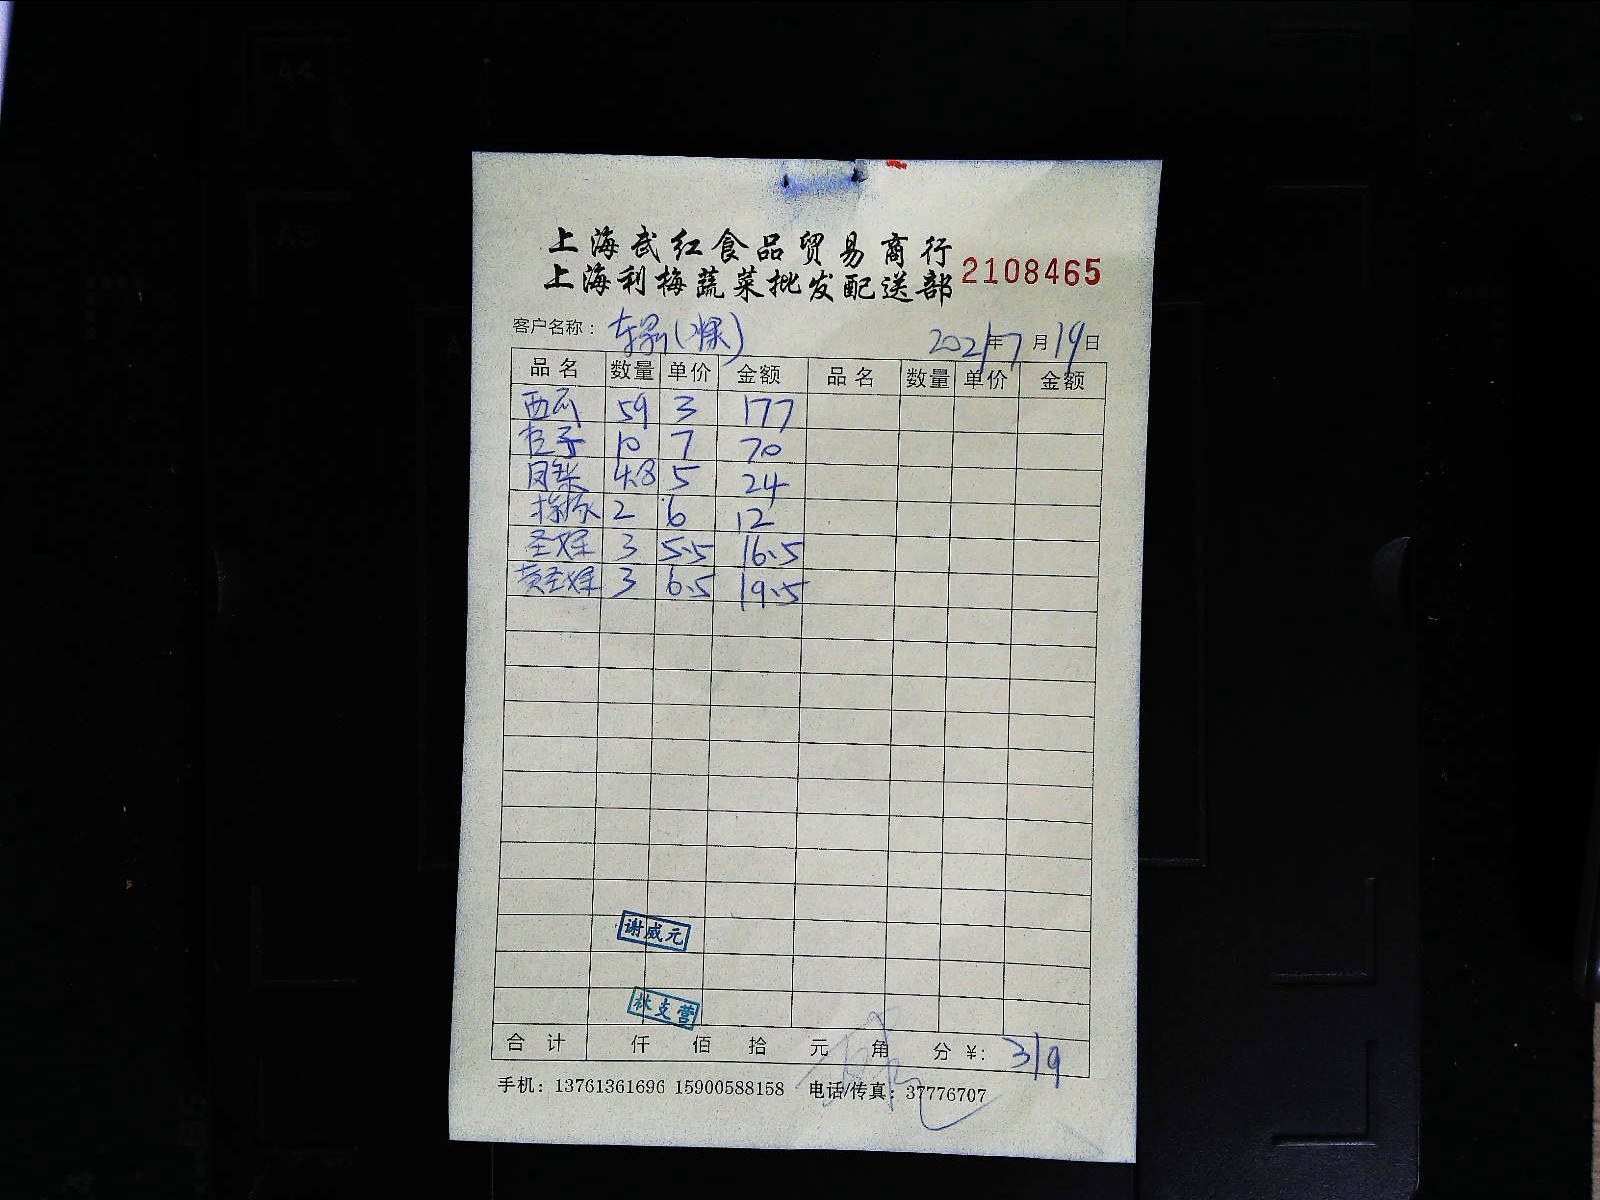 上海武红食品贸易商行
上海利梅蔬菜批发配送部 2108465
客户名称： 2021年7月19日
品名 数量 单价 金额 品名 数量 单价 金额
西瓜 59 3 177
桔子 10 7 70
凤梨 4.8 5 24
2 6 12
圣女果 3 5.5 16.5
黄圣女果 3 6.5 19.5
谢威元
林支营
合计 仟 佰 拾 元 角 分 ¥: 319
手机：13761361696 15900588158 电话/传真：37776707